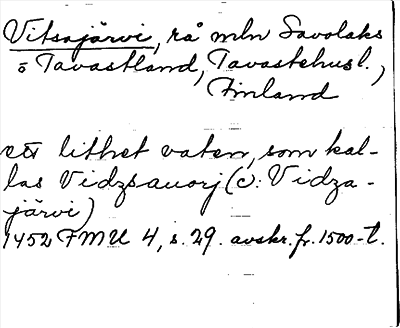 Vitsajärvi, rå mln Savolaks
o Tavastland, Tavastehusl.,
Finland
ett lithet vaten, som kal-
las Vidzsauorj (ɔ: Vidza-
järvi)
1452 FMU 4, s. 29. avskr. fr. 1500-t.